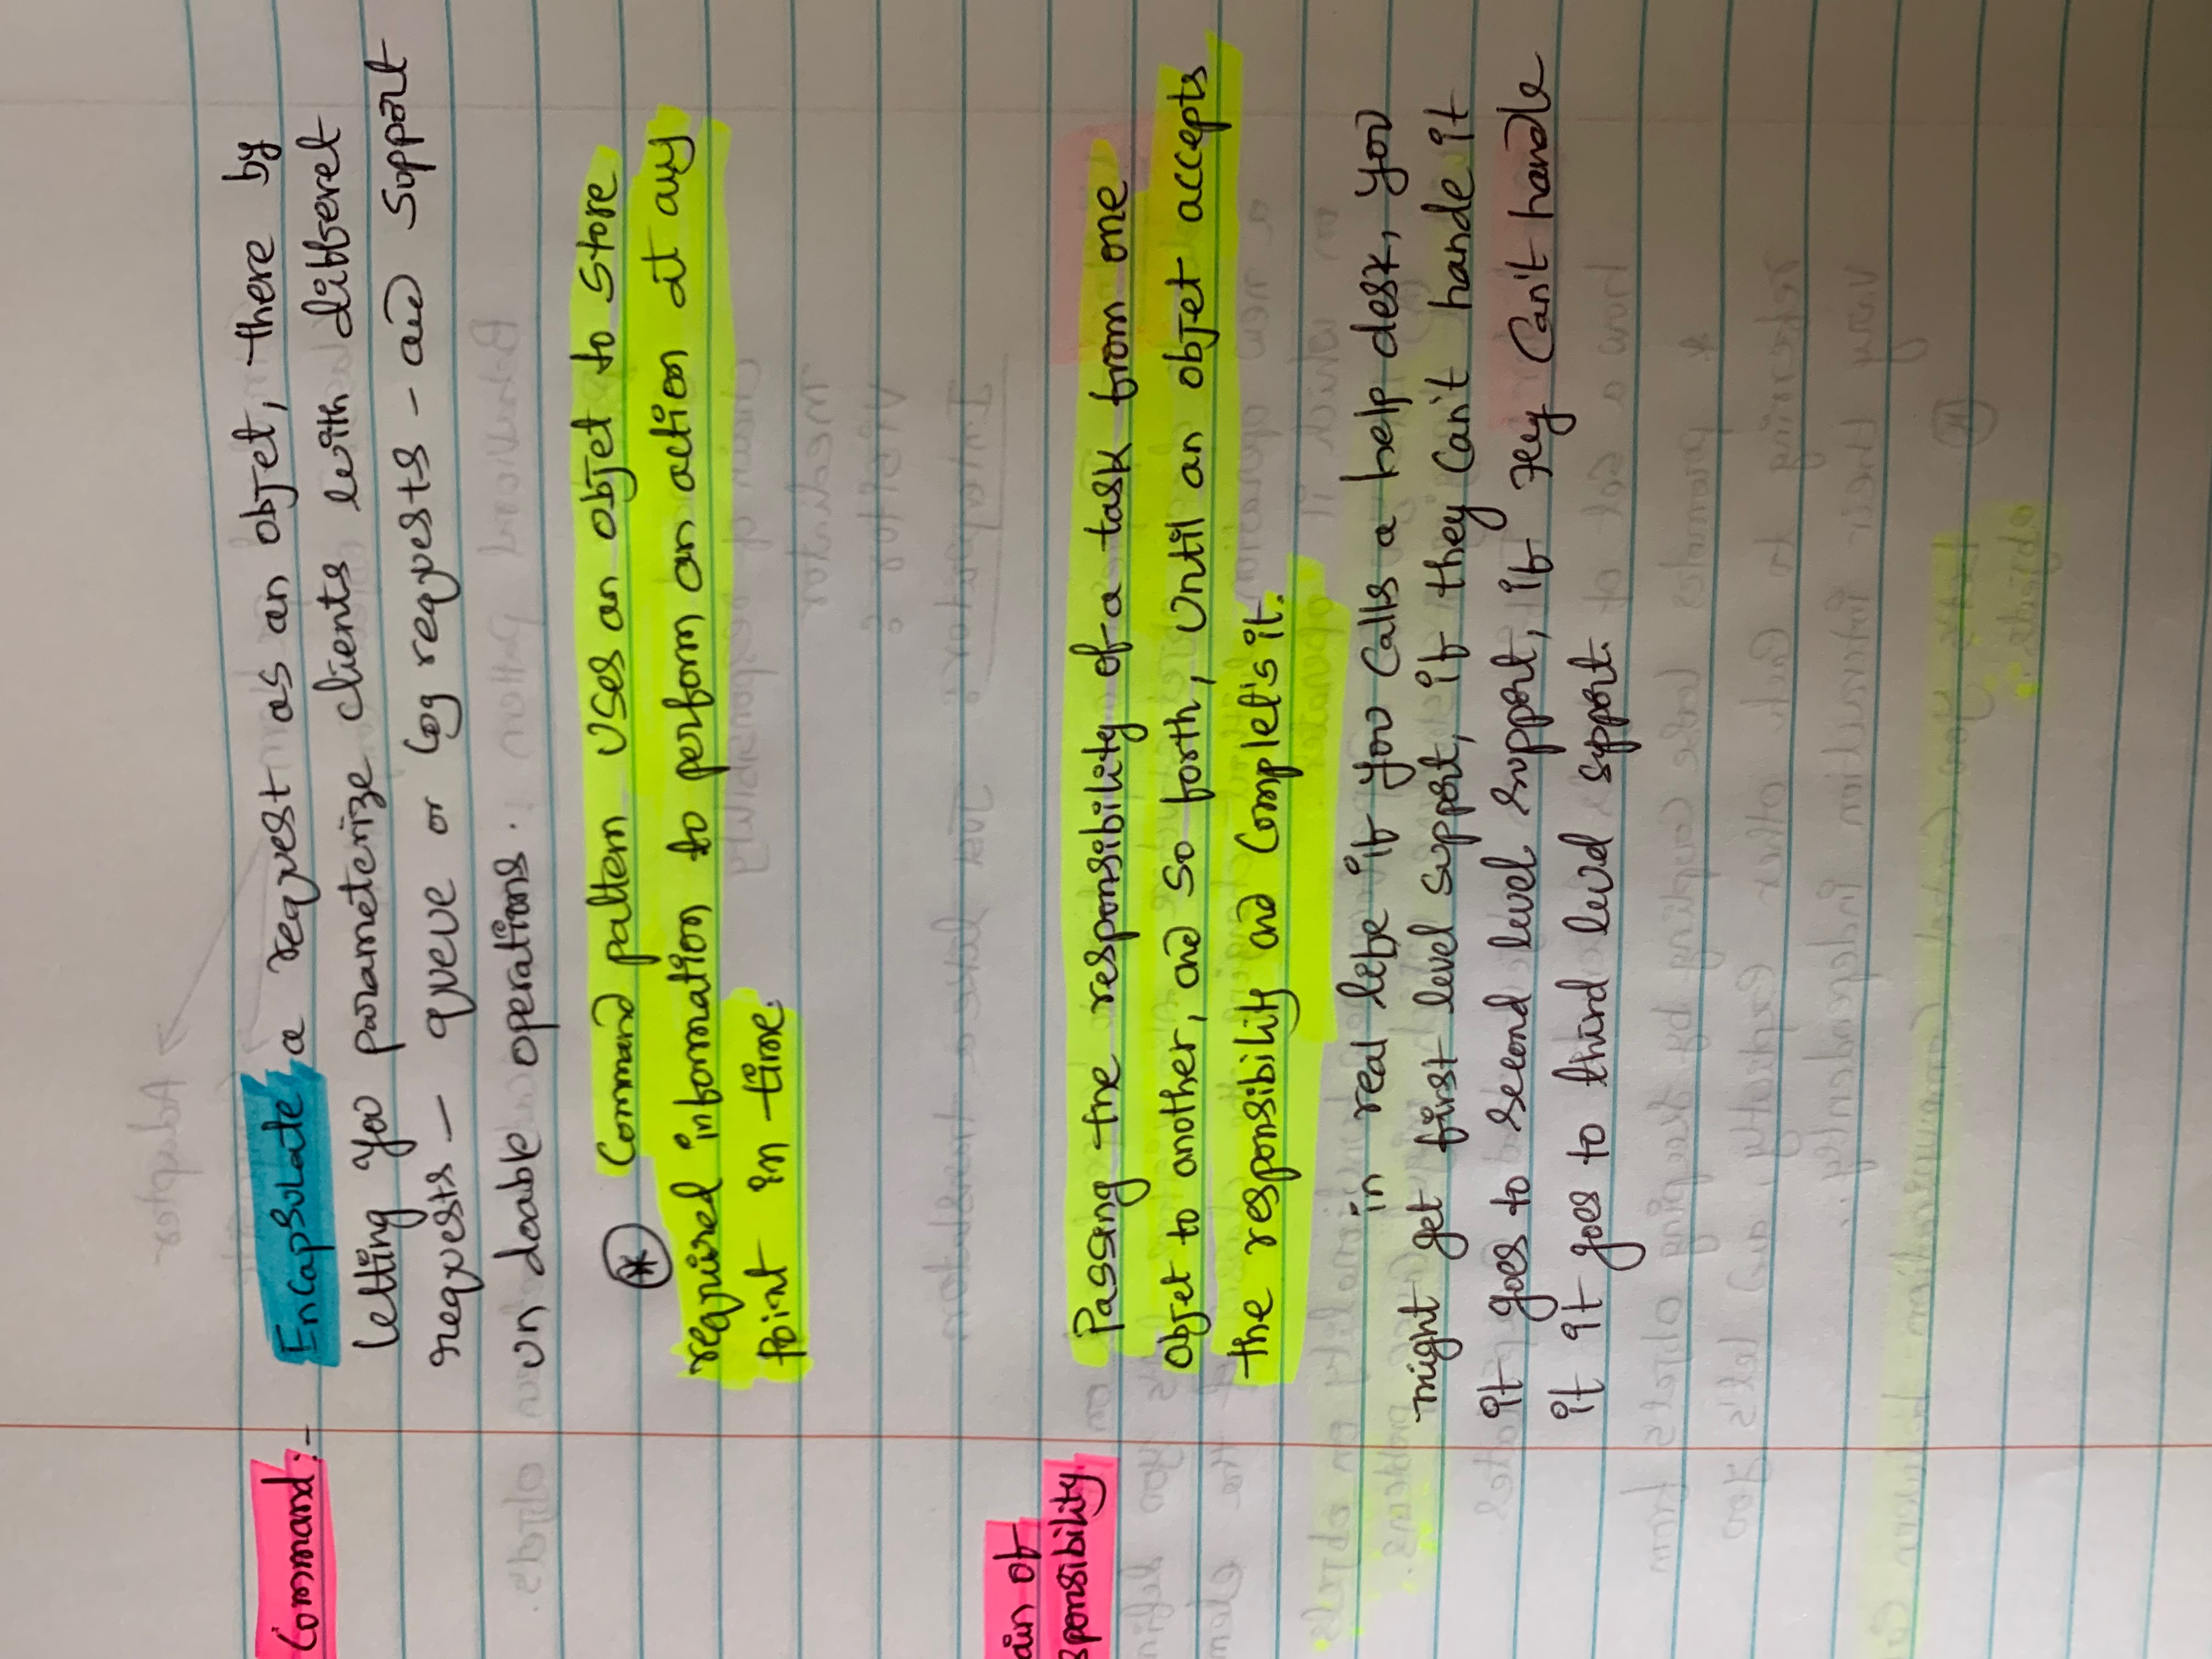 Command:- Encapsulate a request as an objet, there by
letting you parameterize clients with differet
requests — queue or log requests - and support
un doable operations.
* Command pattern uses an objet to store
required information to perform an action at any
point in time.
ain of
sponsibility
Passing the responsibility of a task from one
objet to another, and so forth, until an objet accepts
the responsibility and Complet's it.
in real life if you calls a help desk, you
might get first level support, if they can't hande it
it goes to second level support, if they can't handle
it it goes to third level support.